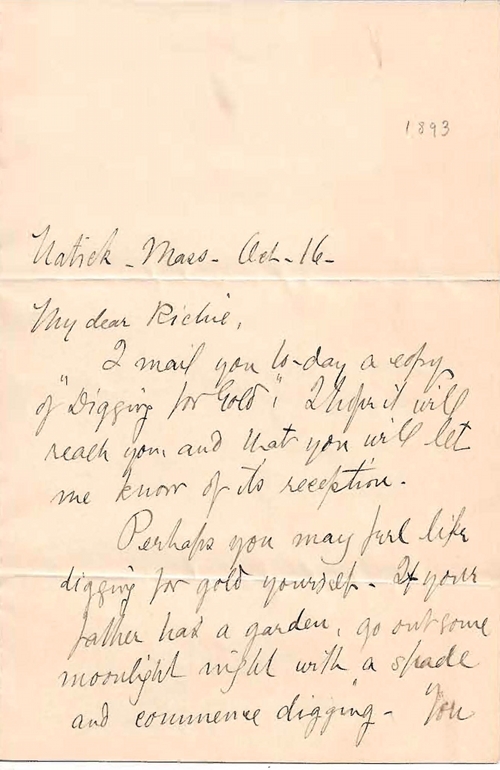 1893
Natick - Mass - Oct - 16 -
My dear Richie,
I mail you to-day a copy
of "Digging for Gold". I hope it will
reach you, and that you will let
me know of its reception.
Perhaps you may feel like
digging for gold yourself. If your
father has a garden, go out some
moonlight night with a spade
and commence digging - You